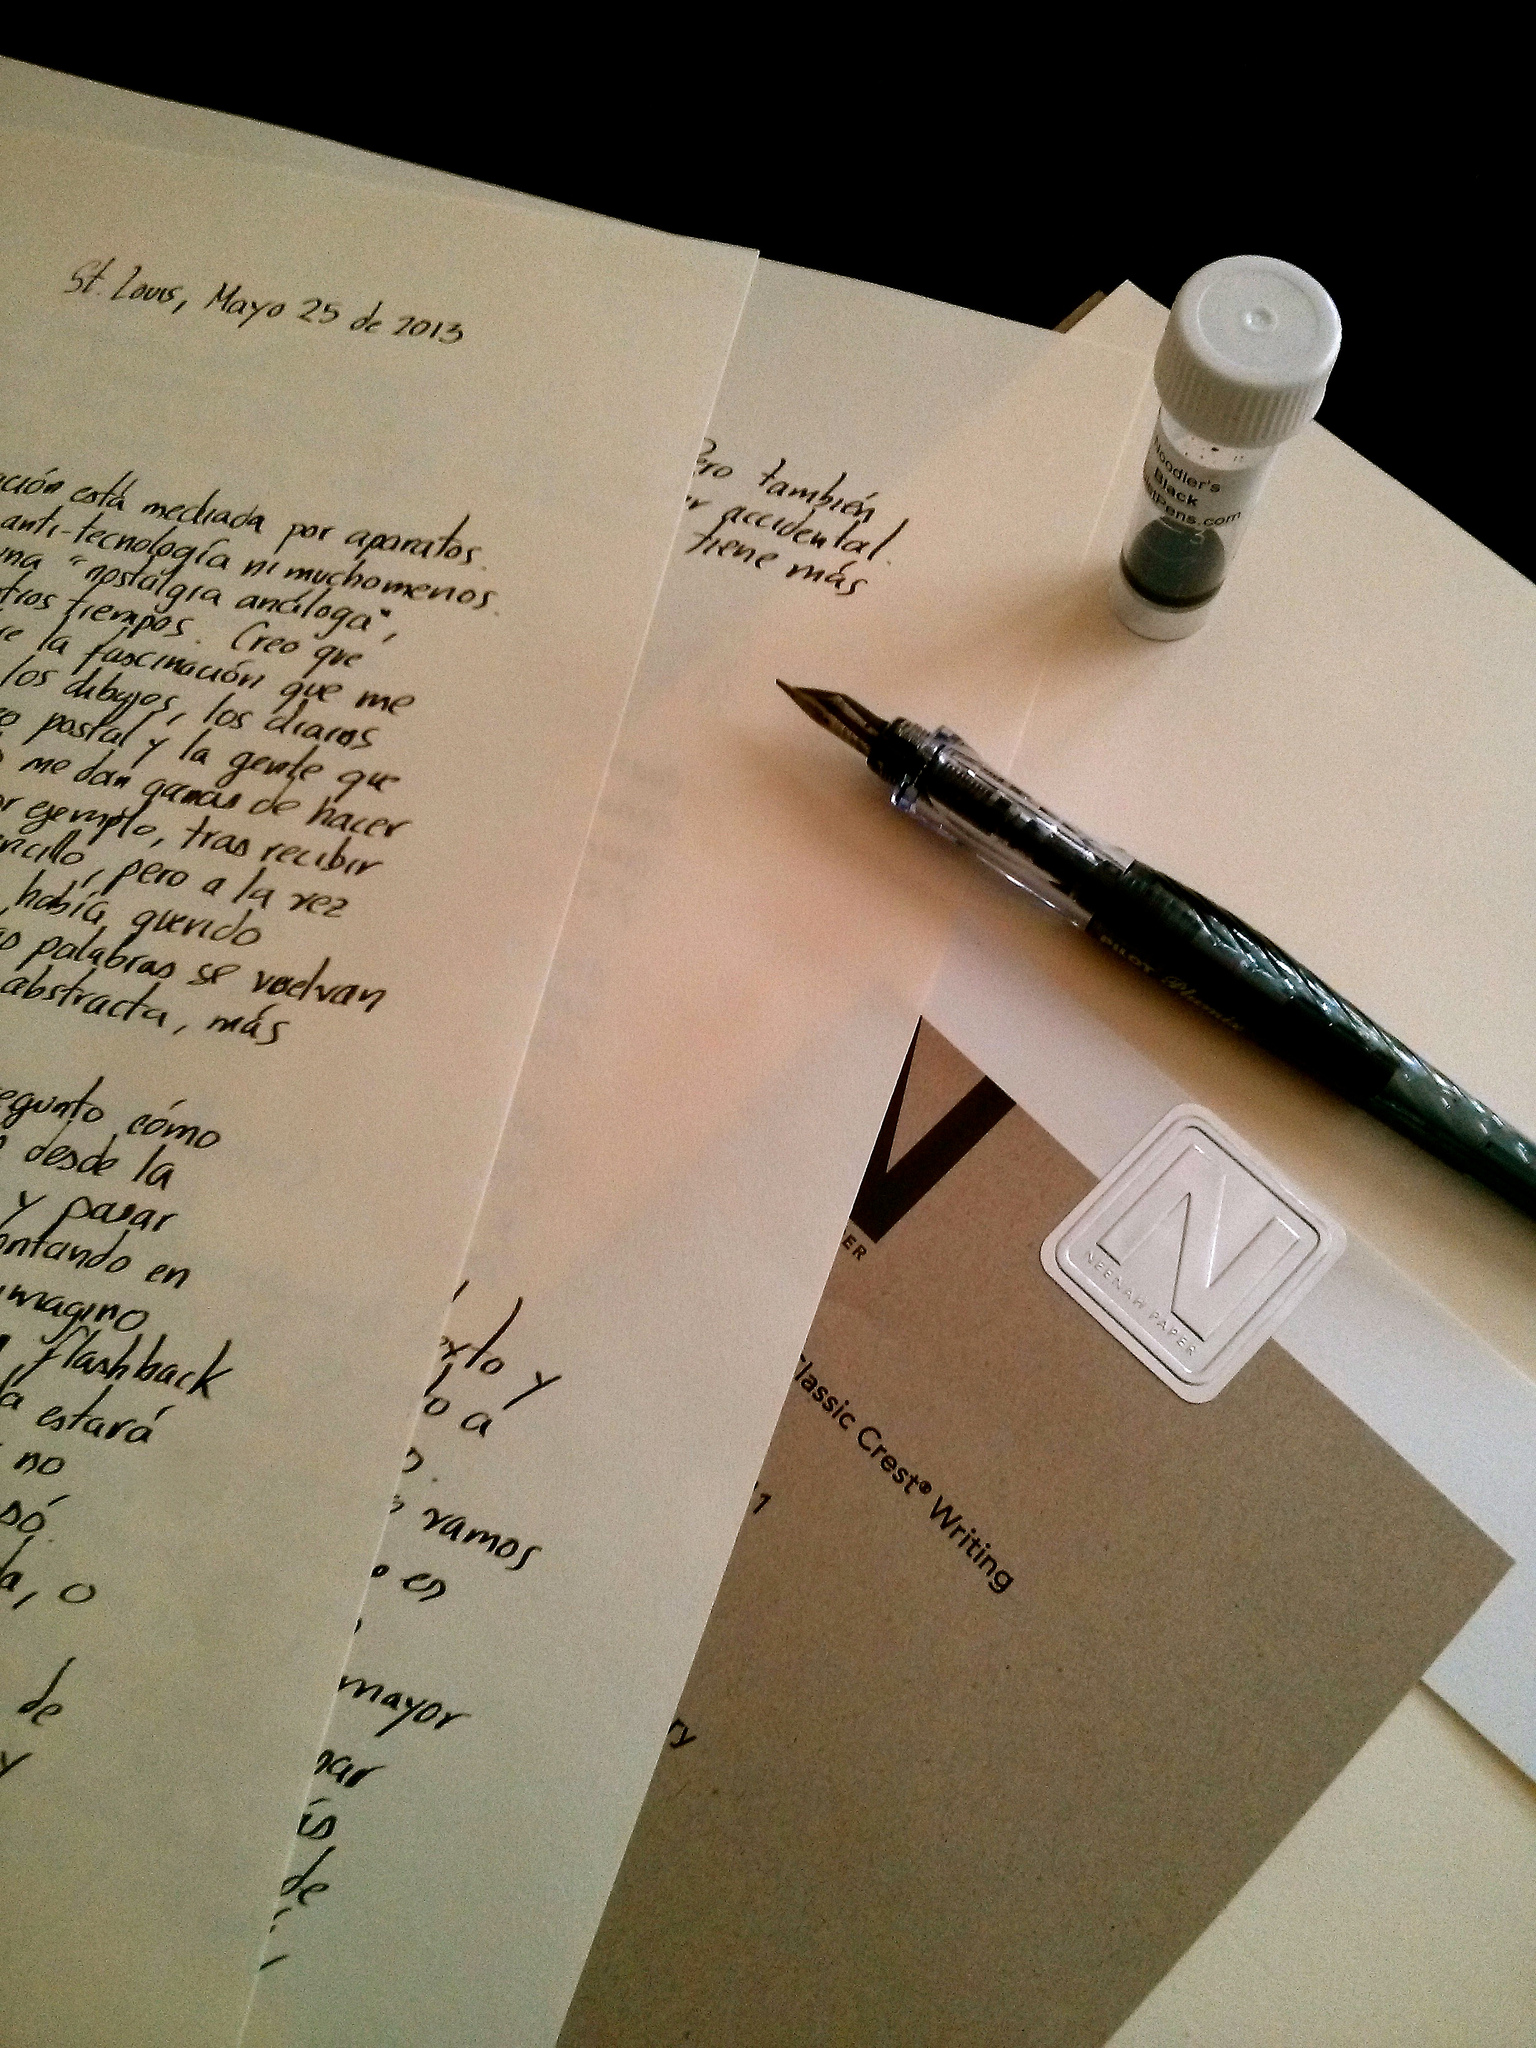 St. Louis, Mayo 25 de 2013
ción está mediada por aparatos.
anti-tecnología ni muchomenos.
una "nostalgia análoga",
tros tiempos. Creo que
re la fascinación que me
los dibujos, los diarios
eo postal y la gente que
me dan ganas de hacer
or ejemplo, tras recibir
ncillo, pero a la vez
había querido
as palabras se vuelvan
abstracta, más
egunto cómo
desde la
y pasar
ontando en
imagino
flashback
lá estará
no
só.
da, o
de
y
Pero también
r accidental.
tiene más
erto y
o a
vamos
en
mayor
nar
ás
de
Noodler's
Black
letPens.com
PILOT Plumix
ER
NEENAH PAPER
Classic Crest® Writing
1
ry